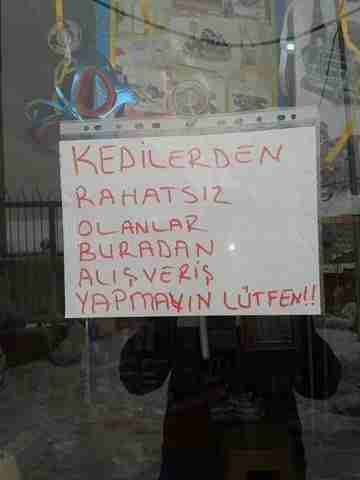 KEDİLERDEN
RAHATSIZ
OLANLAR
BURADAN
ALIŞVERİŞ
YAPMAYIN LÜTFEN!!